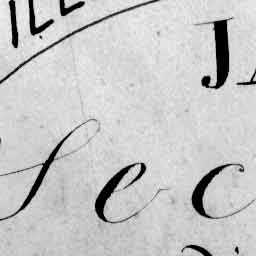 ILL
JA
Sec